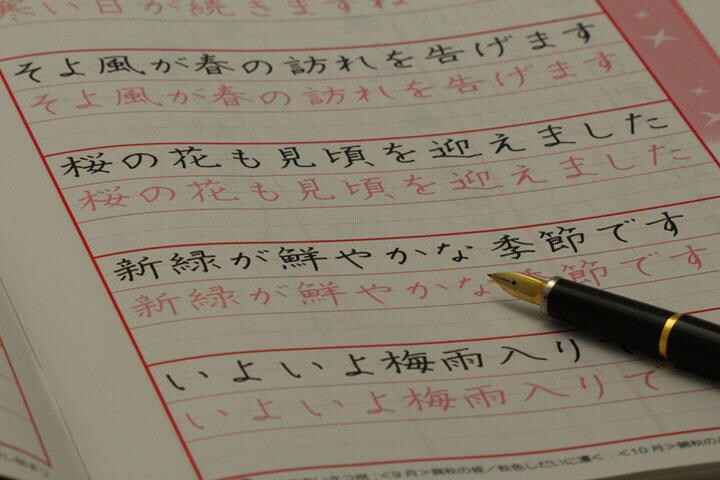 寒い日が続きますね
そよ風が春の訪れを告げます
そよ風が春の訪れを告げます
桜の花も見頃を迎えました
桜の花も見頃を迎えました
新緑が鮮やかな季節です
新緑が鮮やかな季節です
いよいよ梅雨入り
いよいよ梅雨入りで
＜9月＞ ／秋色しだいに濃く ＜10月＞